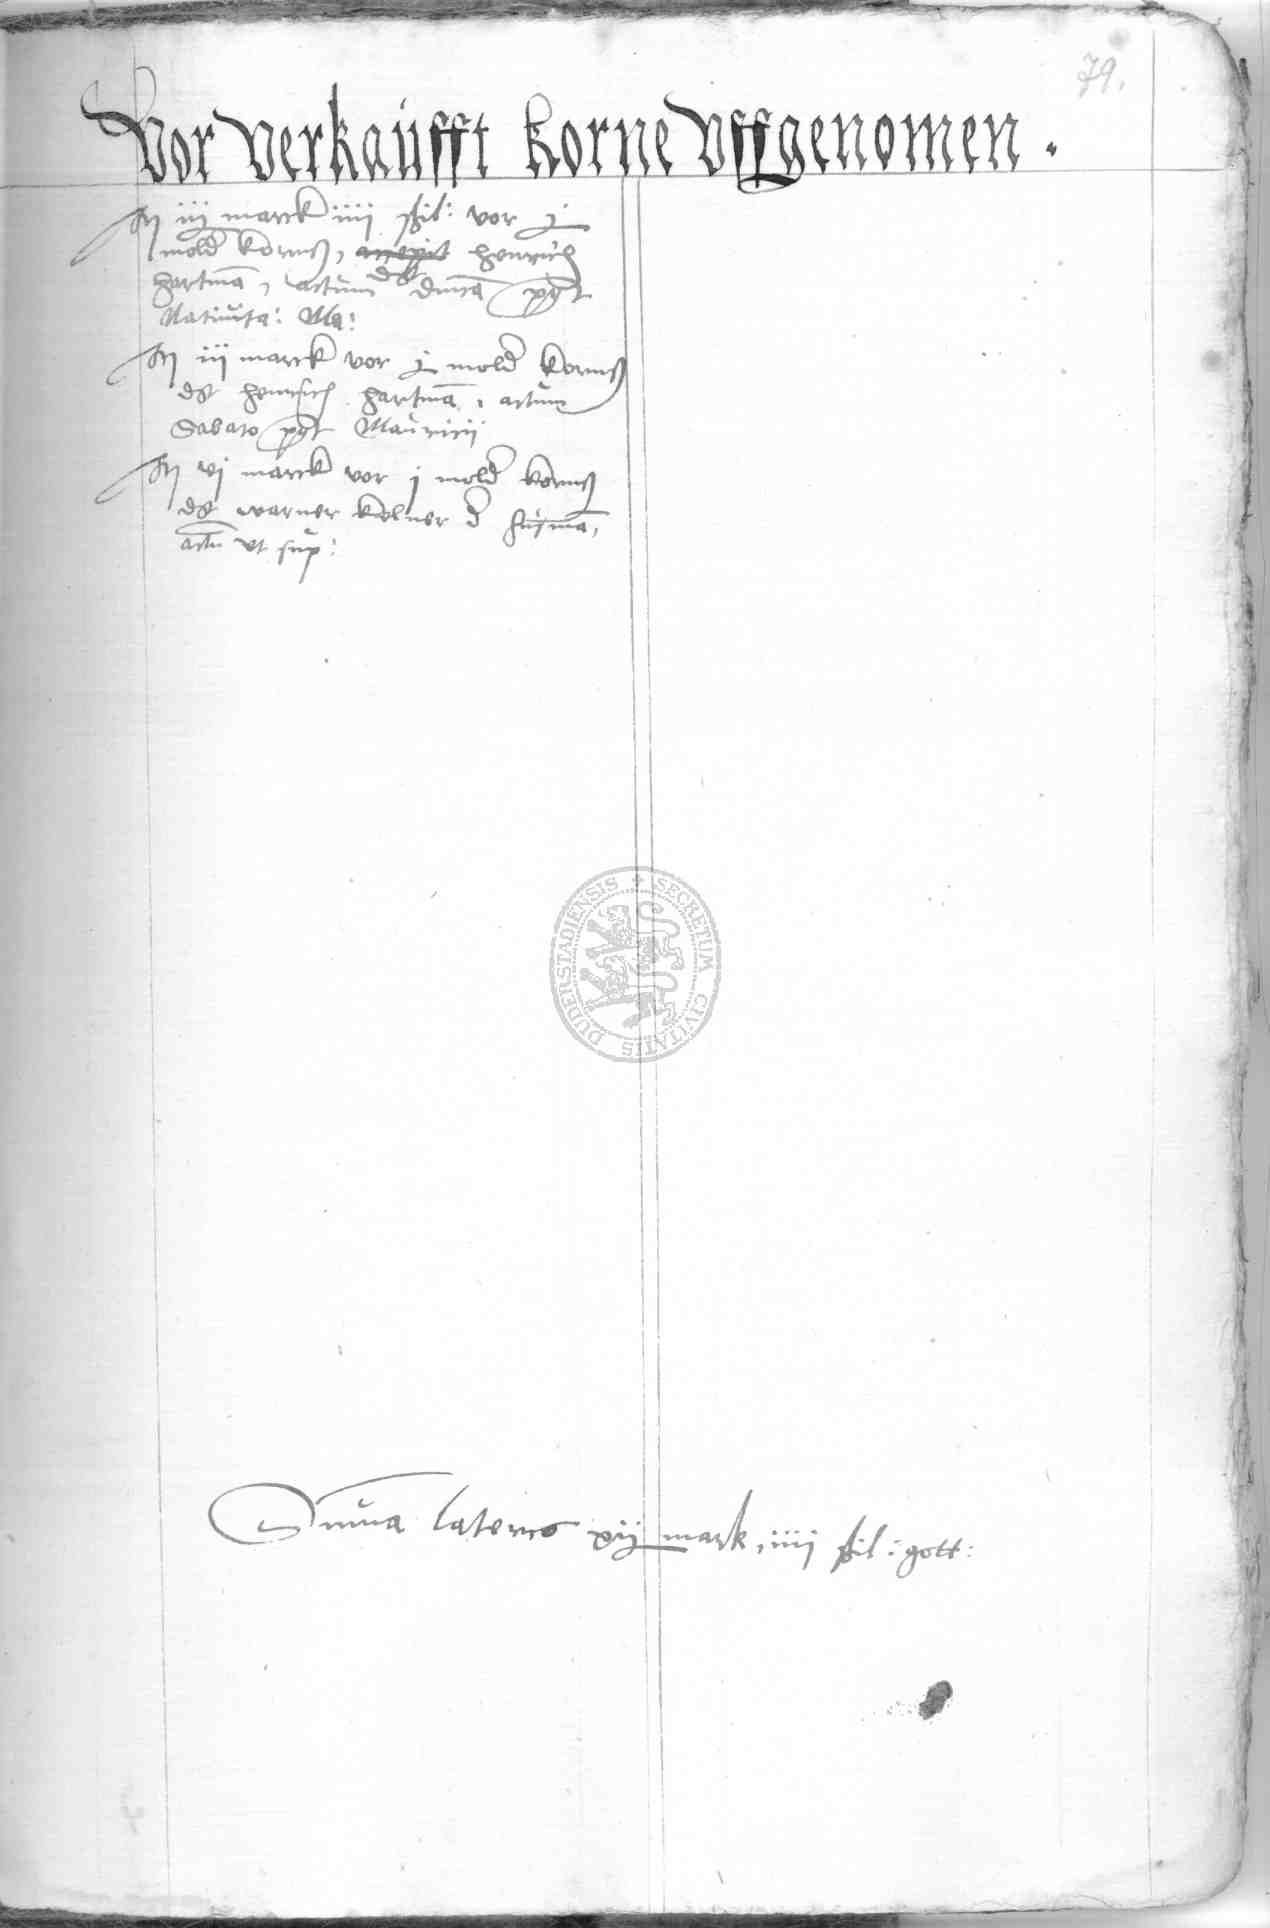 79.
Vor verkaufft korne uffgenomen .
It iij marck iiii ßil: vor j
mold korns, accepit henrich
dt
hartmā, actum dnica pt
Nativita: Ma:
It iii marck vor j mold korns
dt henrich hartmā, actum
Sabato pt Mauricii
It vj marck vor j mold korns
dt warner kolner d
actū ut sup:
Suma lateris xij mark, iiii ßil: gott:
SECRETUM CIVITATIS DUDERSTADIENSIS